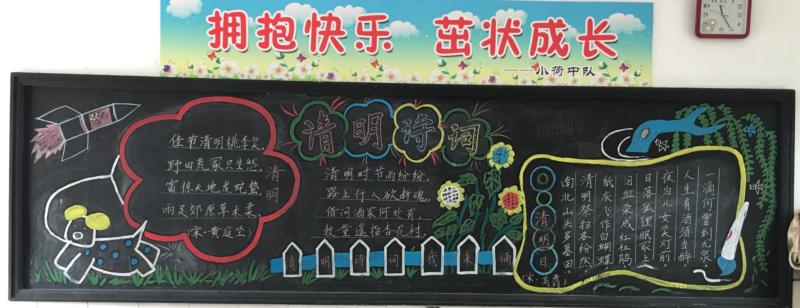 拥抱快乐 茁状成长
——小荷中队
清明诗词
佳节清明桃李笑，
野田荒冢只生愁，
雷惊天地龙蛇蛰，
雨足郊原草木柔。
（宋·黄庭坚）
清明
清明时节雨纷纷，
路上行人欲断魂，
借问酒家何处有，
牧童遥指杏花村。
清明诗词我来诵
清明日
（宋·高翥）
南北山头多墓田，
清明祭扫各纷然，
纸灰飞作白蝴蝶
泪血染成红杜鹃
日落狐狸眠冢上
夜归儿女笑灯前
人生有酒须当醉，
一滴何曾到九泉。